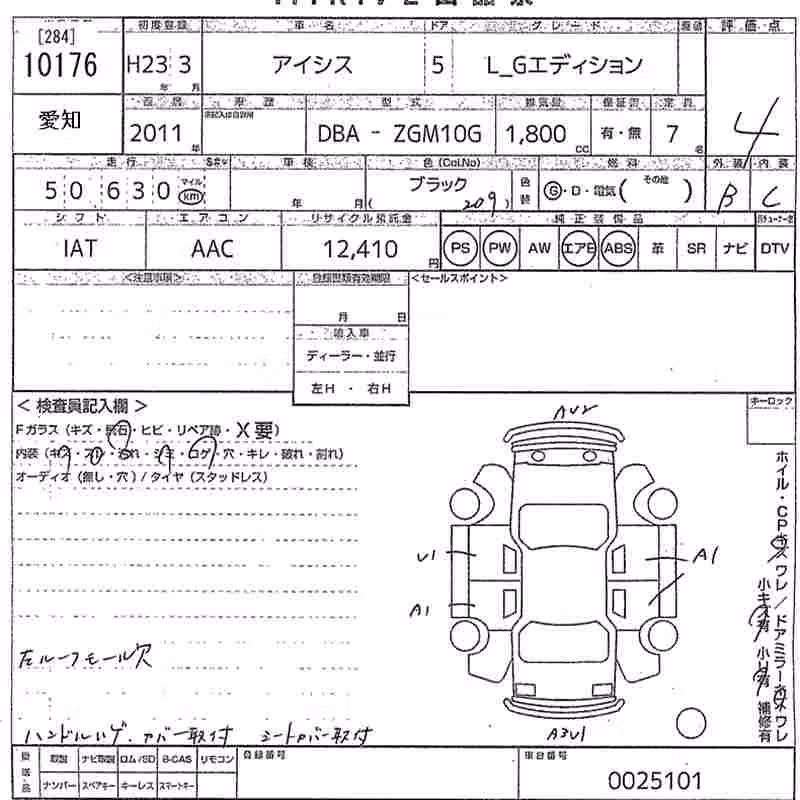 [284]
10176
初度登録 車名 ドア グレード 評価点
H23 3 年 月 アイシス 5 L_Gエディション 4
愛知
車歴 型式 排気量 保証書 定員
2011 年 DBA - ZGM10G 1,800 CC 有・無 7 名
走行 車検 色(Col.No) 燃料 外装 内装
50 630 マイル km 年 月 ブラック ( 209 ) 色替 G・D・電気( その他 ) B C
シフト エアコン リサイクル預託金 純正装備品
IAT AAC 12,410 円 PS PW AW エアB ABS 革 SR ナビ DTV
<注意事項> 登録書類有効期限 <セールスポイント>
月 日
輸入車
ディーラー・並行
左H ・ 右H
< 検査員記入欄 > キーロック
Fガラス (キズ・飛石・ヒビ・リペア跡・X要)
内装 (キズ・スレ・汚れ・シミ・コゲ・穴・キレ・破れ・割れ)
オーディオ (無し・穴) / タイヤ (スタッドレス)
AU2
U1 A1
A1
A3U1
ホイル・CPキズワレ / ドアミラーキズワレ
小キズ有 小凹有 補修有
左ルーフモール欠
ハンドルハゲ・カバー取付 シートカバー取付
取説 ナビ取説 ロム/SD B-CAS リモコン 登録番号 車台番号
ナンバー スペアキー キーレス スマートキー 0025101